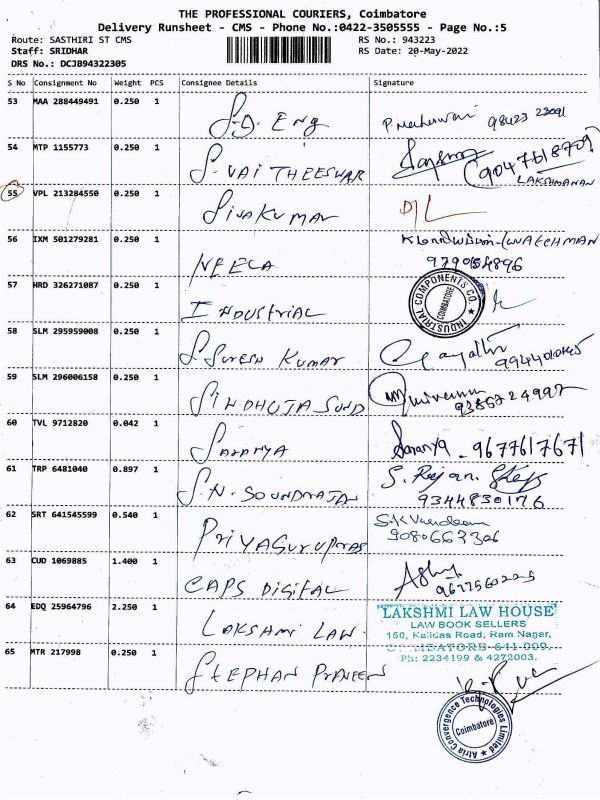 THE PROFESSIONAL COURIERS, Coimbatore
Delivery Runsheet - CMS - Phone No.:0422-3505555 - Page No.:5
Route: SASTHIRI ST CMS RS No.: 943223
Staff: SRIDHAR RS Date: 20-May-2022
DRS No.: DCJB94322305
S No Consignment No Weight PCS Consignee Details Signature
53 MAA 288449491 0.250 1 S.D. ENG 98423 23091
54 MTP 1155773 0.250 1 S. VAITHEESWAR 9047618709
LAKSHMANAN
55 VPL 213284550 0.250 1 SIVAKUMAR
56 IXM 501279281 0.250 1 NEELA (WATCHMAN
9790154896
57 HRD 326271087 0.250 1 INDUSTRIAL INDUSTRIAL COMPONENTS CO. COIMBATORE
58 SLM 295959008 0.250 1 S SURESH KUMAR Gayathri
59 SLM 296006158 0.250 1 SINDHUJA SUND
9385724997
60 TVL 9712820 0.042 1 SARANYA Saranya - 9677617671
61 TRP 6481040 0.897 1 S.N. SOUNDRAJAN S. Rajan.
9344830176
62 SRT 641545599 0.540 1 PRIYAGURUPRAS S.K
9080663306
63 CUD 1069885 1.400 1 CAPS DIGITAL
64 EDQ 25964796 2.250 1 LAKSHMI LAW LAKSHMI LAW HOUSE
LAW BOOK SELLERS
150, Kalidas Road, Ram Nagar,
COIMBATORE-641 009.
Ph: 2234199 & 4272003.
65 MTR 217998 0.250 1 STEPHAN PRAVEEN
Atria Convergence Technologies Limited
Coimbatore